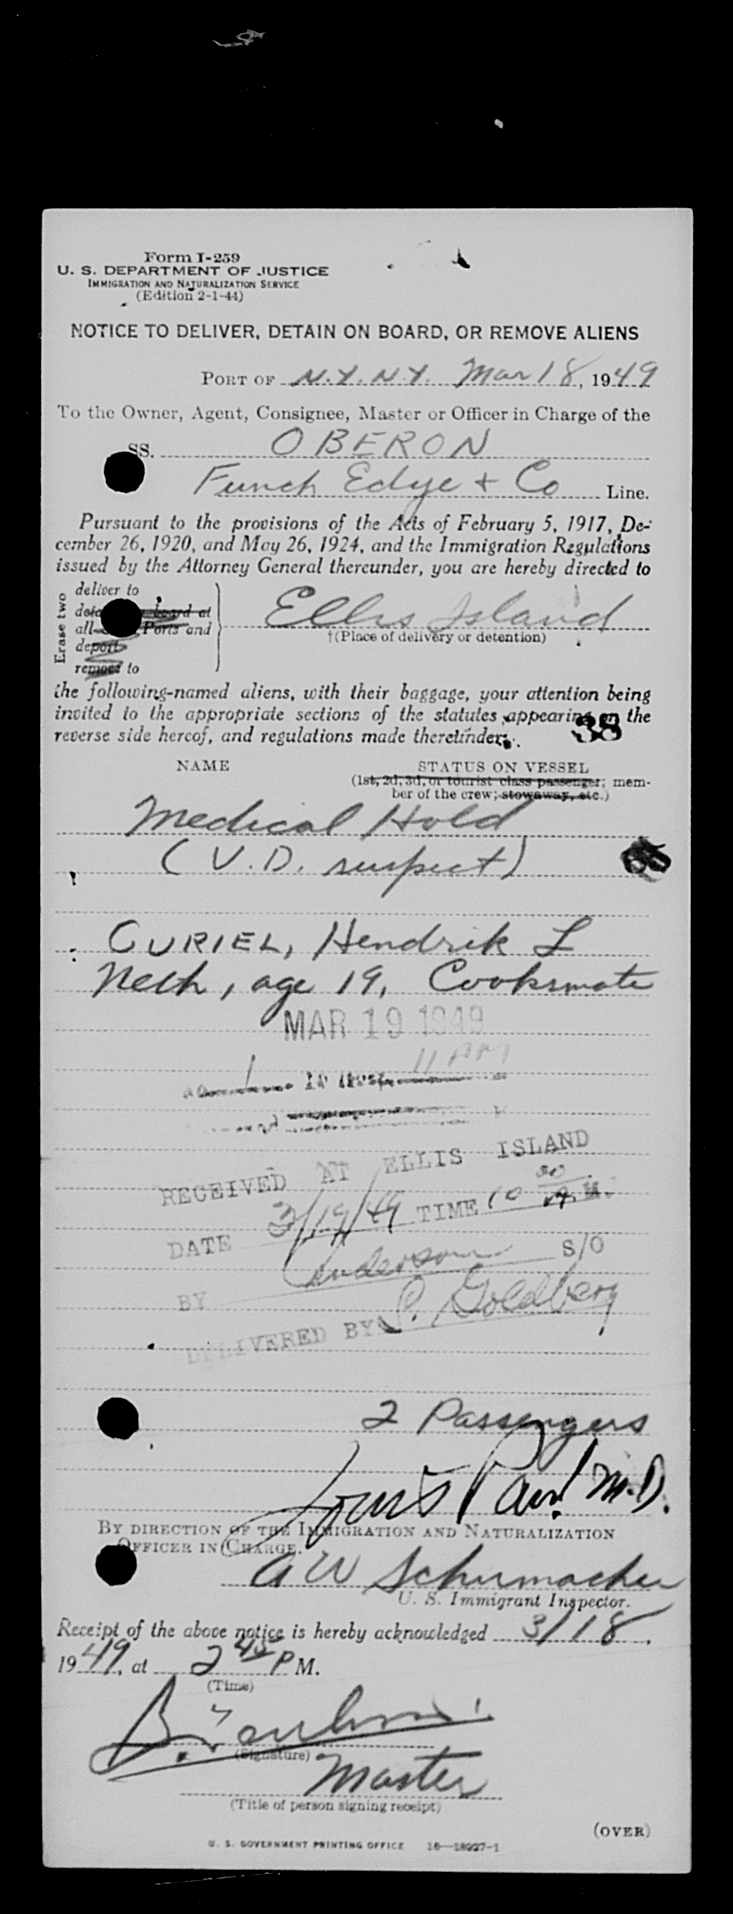 Form I-259
U. S. DEPARTMENT OF JUSTICE
IMMIGRATION AND NATURALIZATION SERVICE
(Edition 2-1-44)
NOTICE TO DELIVER, DETAIN ON BOARD, OR REMOVE ALIENS
PORT OF N.Y. N.Y. Mar 18, 1949
To the Owner, Agent, Consignee, Master or Officer in Charge of the
SS. OBERON
Funch Edye + Co Line.
Pursuant to the provisions of the Acts of February 5, 1917, De-
cember 26, 1920, and May 26, 1924, and the Immigration Regulations
issued by the Attorney General thereunder, you are hereby directed to
Erase two
deliver to
board at
all Ports and
deport
remove to
Ellis Island
†(Place of delivery or detention)
the following-named aliens, with their baggage, your attention being
invited to the appropriate sections of the statutes appearing on the
reverse side hereof, and regulations made thereunder.
38
NAME STATUS ON VESSEL
(1st, 2d, 3d, or tourist class passenger; mem-
ber of the crew; stowaway, etc.)
Medical Hold
(V.D. suspect)
CURIEL, Hendrik L
Neth, age 19, Cooksmate
MAR 19 1949
11 AM
RECEIVED AT ELLIS ISLAND
DATE 3/19/49 TIME 10 30 A.M.
BY Anderson S/O
DELIVERED BY P. Goldberg
2 Passengers
Louis M.D.
BY DIRECTION OF THE IMMIGRATION AND NATURALIZATION
OFFICER IN CHARGE.
A W Schumacher
U. S. Immigrant Inspector.
Receipt of the above notice is hereby acknowledged 3/18,
1949, at 2 45 P M.
(Time)
(Signature)
Master
(Title of person signing receipt)
(OVER)
U. S. GOVERNMENT PRINTING OFFICE 16—18027-1